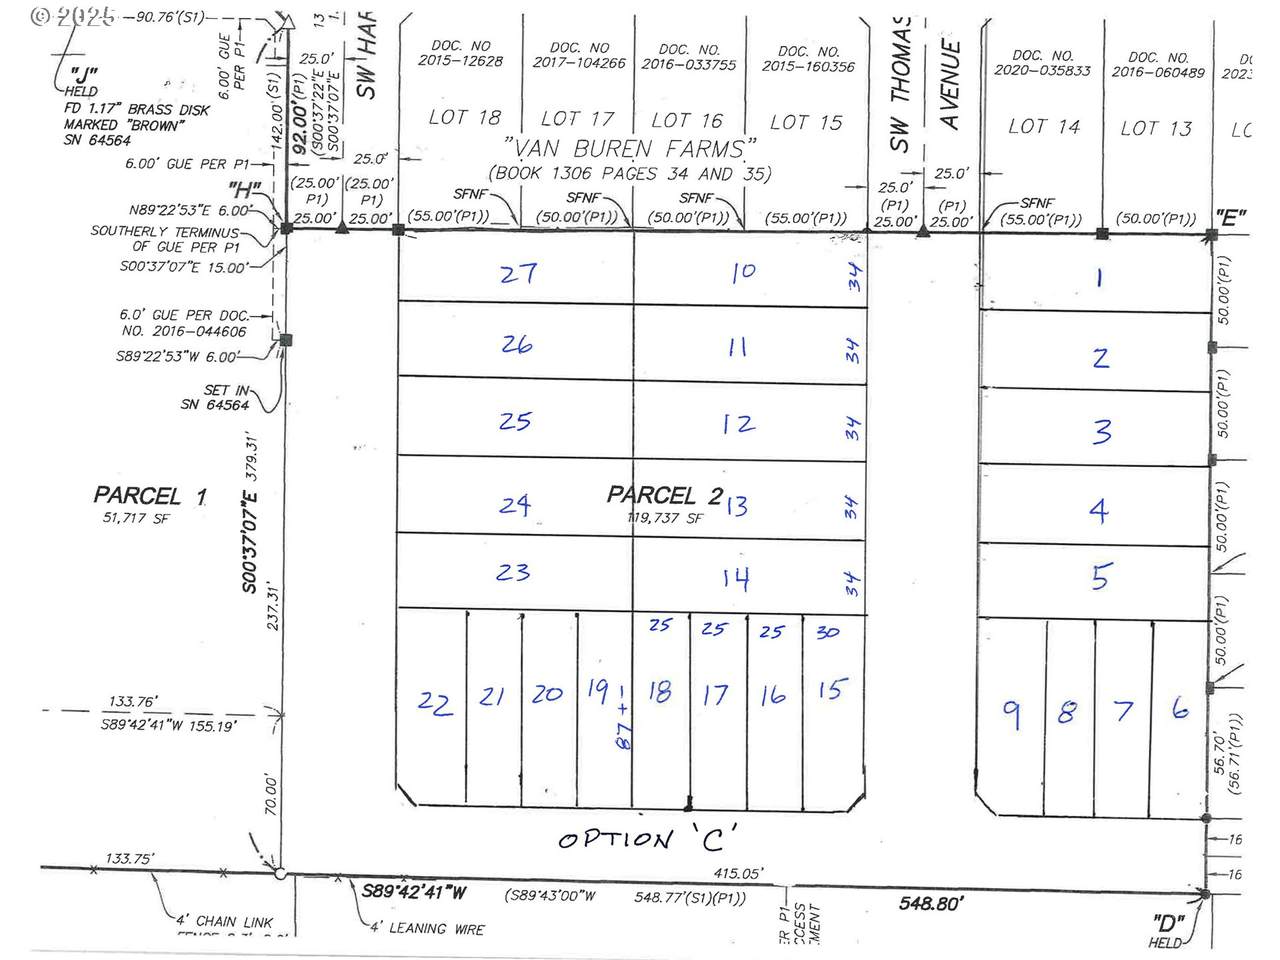 © 2025
90.76'(S1)
"J"
HELD
FD 1.17" BRASS DISK
MARKED "BROWN"
SN 64564
6.00' GUE
PER P1
142.00'(S1)
92.00'(P1)
(S00°37'22"E
S00°37'07"E
13
1.
25.0'
SW HAR
25.0'
6.00' GUE PER P1
"H"
N89°22'53"E 6.00'
SOUTHERLY TERMINUS
OF GUE PER P1
S00°37'07"E 15.00'
6.0' GUE PER DOC.
NO. 2016-044606
S89°22'53"W 6.00'
SET IN
SN 64564
(25.00'
P1)
25.00'
(25.00'
P1)
25.00'
DOC. NO
2015-12628
DOC. NO
2017-104266
DOC. NO.
2016-033755
DOC. NO.
2015-160356
LOT 18
LOT 17
LOT 16
LOT 15
"VAN BUREN FARMS"
(BOOK 1306 PAGES 34 AND 35)
SFNF
SFNF
(55.00'(P1))
(50.00'(P1))
(50.00'(P1))
(55.00'(P1))
SW THOMAS
AVENUE
25.0'
25.0'
(25.00'
P1)
25.00'
(25.00'
P1)
25.00'
DOC. NO.
2020-035833
DOC. NO.
2016-060489
D
202
LOT 14
LOT 13
LO
SFNF
(55.00'(P1))
(50.00'(P1))
"E"
27
10
34
1
50.00'(P1)
26
11
34
2
50.00'(P1)
25
12
34
3
PARCEL 1
51,717 SF
S00°37'07"E 379.31'
24
PARCEL 2
119,737 SF
13
34
4
50.00'(P1)
23
14
34
5
237.31'
25
25
25
30
50.00'(P1)
22
21
20
19
87 + 1
18
17
16
15
9
8
7
6
133.76'
S89°42'41"W 155.19'
56.70'
(56.71'(P1))
70.00'
OPTION 'C'
16
16
133.75'
S89°42'41"W
(S89°43'00"W
415.05'
548.77'(S1)(P1))
548.80'
4' CHAIN LINK
4' LEANING WIRE
ER P1
CCESS
MENT
"D"
HELD